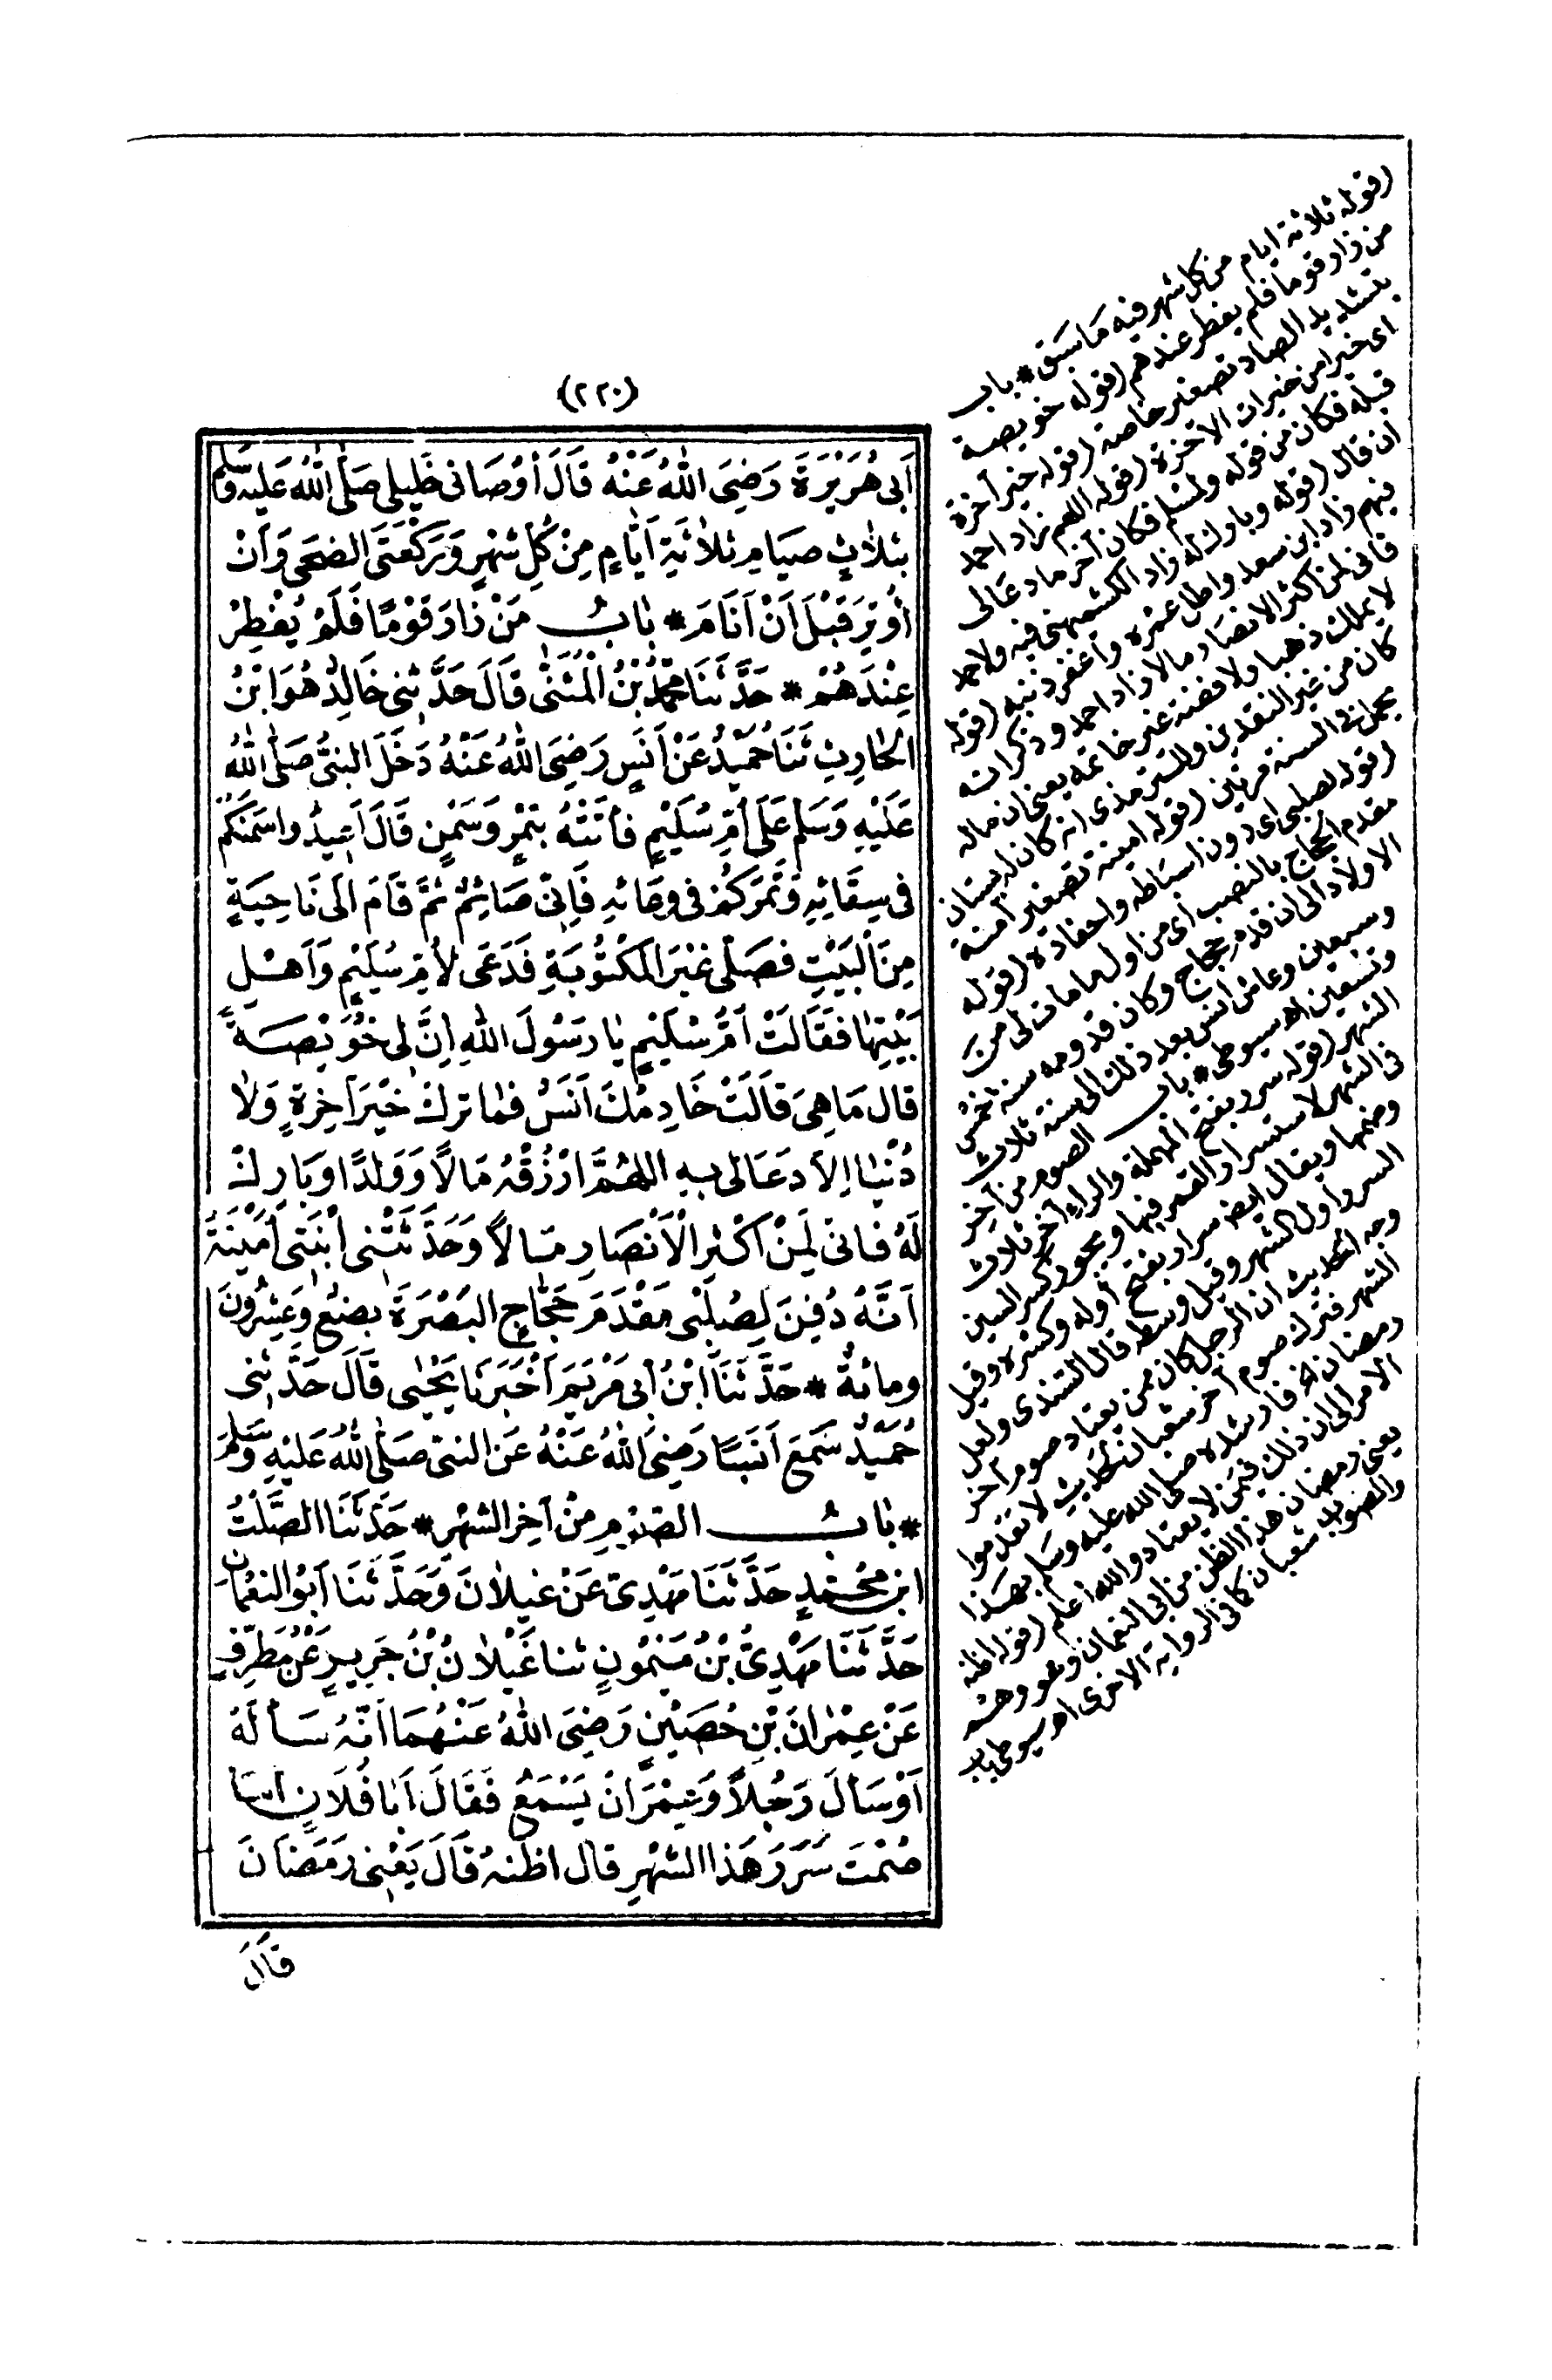 (٢٢٠)
اَبى هُرَيْرَةَ رَضِىَ اللهُ عَنْهُ قَالَ اَوْصَانى خَلِيلى صَلَّى اللهُ عَلَيْهِ وَسَلَّمَ
بِثَلاثٍ صِيَامِ ثَلاثَةِ اَيَّامٍ مِنْ كُلِّ شَهْرٍ وَرَكْعَتَىِ الضحَى وَاَنْ
اُوْتِرَ قَبْلَ اَنْ اَنَامَ * بابُ مَنْ زَارَ قَوْمًا فَلَمْ يُفْطِرْ
عِنْدَهُمْ * حَدَّثَنَا مُحَمَّدُ بْنُ الْمُثَنَّى قَالَ حَدَّثَنِى خَالِدٌ هُوَ ابْنُ
الحَارِثِ ثَنَا حُمَيْدٌ عَنْ اَنَسٍ رَضِىَ اللهُ عَنْهُ دَخَلَ النبىُّ صَلَّى اللهُ
عَلَيْهِ وَسَلَّمَ عَلَى اُمِّ سُلَيْمٍ فَاَتَتْهُ بِتَمْرٍ وَسَمْنٍ قَالَ اَعِيدُوا سَمْنَكُمْ
فى سِقَائِهِ وَتَمْرَكُمْ فى وِعَائِهِ فَاِنّى صَائِمٌ ثُمَّ قَامَ الَى نَاحِيَةٍ
مِنَ الْبَيْتِ فَصَلَّى غَيْرَ المَكْتُوبَةِ فَدَعَى لأُمِّ سُلَيْمٍ وَاَهْلِ
بَيْتِهَا فَقَالَتْ اُمُّ سُلَيْمٍ يا رَسُولَ اللهِ اِنَّ لى خُوَيْصَةً
قال مَا هِىَ قَالَتْ خَادِمُكَ اَنَسٌ فما ترك خَيْرَ آخِرَةٍ وَلا
دُنْيَا اِلاّ دَعَا لى بِهِ اللهُمَّ ارْزُقْهُ مَالاً وَوَلَدًا وَبَارِكْ
لَهُ فانى لَمِنْ اَكْثَرِ الْاَنْصَارِ مَالاً وَحَدَّثَتْنِى ابْنَتى اُمَيْنَةُ
اَنَّهُ دُفِنَ لِصُلْبى مَقْدَمَ حَجَّاجٍ البَصْرَةَ بِضْعٌ وَعِشْرُونَ
ومائةٌ * حَدَّثَنَا ابْنُ اَبى مَرْيَمَ اَخْبَرَنَا يَحْيَى قَالَ حَدَّثَنِى
حُمَيْدٌ سَمِعَ اَنَسًا رَضِىَ اللهُ عَنْهُ عَنِ النبى صَلَّى اللهُ عَلَيْهِ وَسَلَّمَ
* بابُ الصَّوْمِ مِنْ آخِرِ الشهْرِ * حَدَّثَنَا الصَّلْتُ
ابن مُحَمَّدٍ حَدَّثَنَا مَهْدِىٌّ عَنْ غَيْلانَ وَحَدَّثَنَا اَبُو النعْمَانِ
حَدَّثَنَا مَهْدِىُّ بْنُ مَيْمُونٍ ثنا غَيْلانُ بْنُ جَرِيرٍ عَنْ مُطَرِّفٍ
عَنْ عِمْرَانَ بْنِ حُصَيْنٍ رَضِىَ اللهُ عَنْهُمَا اَنَّهُ سَأَلَهُ
اَوْ سَأَلَ رَجُلاً وَعِمْرَانُ يَسْمَعُ فَقَالَ اَبَا فُلَانٍ اَمَا
صُمْتَ سَرَرَ هَذا الشهْرِ قال اظنهُ قَالَ يَعْنِى رَمَضَانَ
قَالَ
(قوله ثلاثة ايام من كل شهر فيه مَا سَبَق * باب
من زار قوما فلم يفطر عندهم (قوله خويصة
بتشديد الصاد تصغير خاصة (قوله خير آخرة
اى خيرا من خيرات الآخرة (قوله اللهم زاد احمد
قبله فكان من قوله ولمسلم فكان آخر ما دعا لى
ان قال (قوله وبارك له زاد الكشميهنى فيه ولاحمد
فيهم وزاد ابن سعد واطل عمره واغفر ذنبه (قوله
فانى لمن اكثر الانصار مالا زاد احمد وذكر انه
لا يملك ذهبا ولا فضة غير خاتمه يعنى ان ماله
كان من غير النقدين وللترمذى انه كان له بستان
يحمل فى السنة مرتين (قوله امينة تصغير آمنة
(قوله لصلبى اى دون اسباطه واحفاده (قوله
مقدم الحجاج بالنصب اى من اول ما مات لى من
الاولاد الى ان قدم حجاج وكان قدومه سنة خمس
وسبعين وعاش انس بعد ذلك الى سنة ثلاث
وتسعين اه سيوطى * باب الصوم من آخر
الشهر (قوله سرر بفتح المهملة والراء آخر ثلاث
فى الشهر لاستسرار القمر فيها ويجوز كسر السين
وضمها ويقال ايضا سرار بفتح اوله وكسره وقيل
السرر اول الشهر وقيل وسطه قال السندى ولعل
وجه الحديث ان الرجل كان ممن يعتاد صوم آخر
الشهر فترك صوم آخر شعبان لحديث لا تقدموا
رمضان الخ فارشده صلى الله عليه وسلم بهذا
الامر الى ان ذلك فيمن لا يعتاد والله اعلم (قوله اظنه
يعنى رمضان هذا الظن من ابى النعمان وهو وهم
والصواب شعبان كما فى الرواية الاخرى اه سيوطى باب